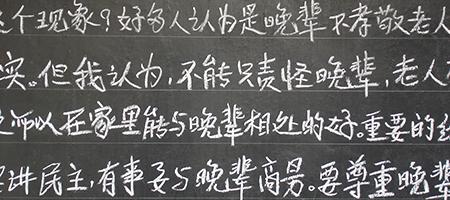 个现象?好多人认为是晚辈不孝敬老人
实。但我认为,不能只责怪晚辈,老人
所以在家里能与晚辈相处的好。重要的
讲民主,有事要与晚辈商量。要尊重晚辈